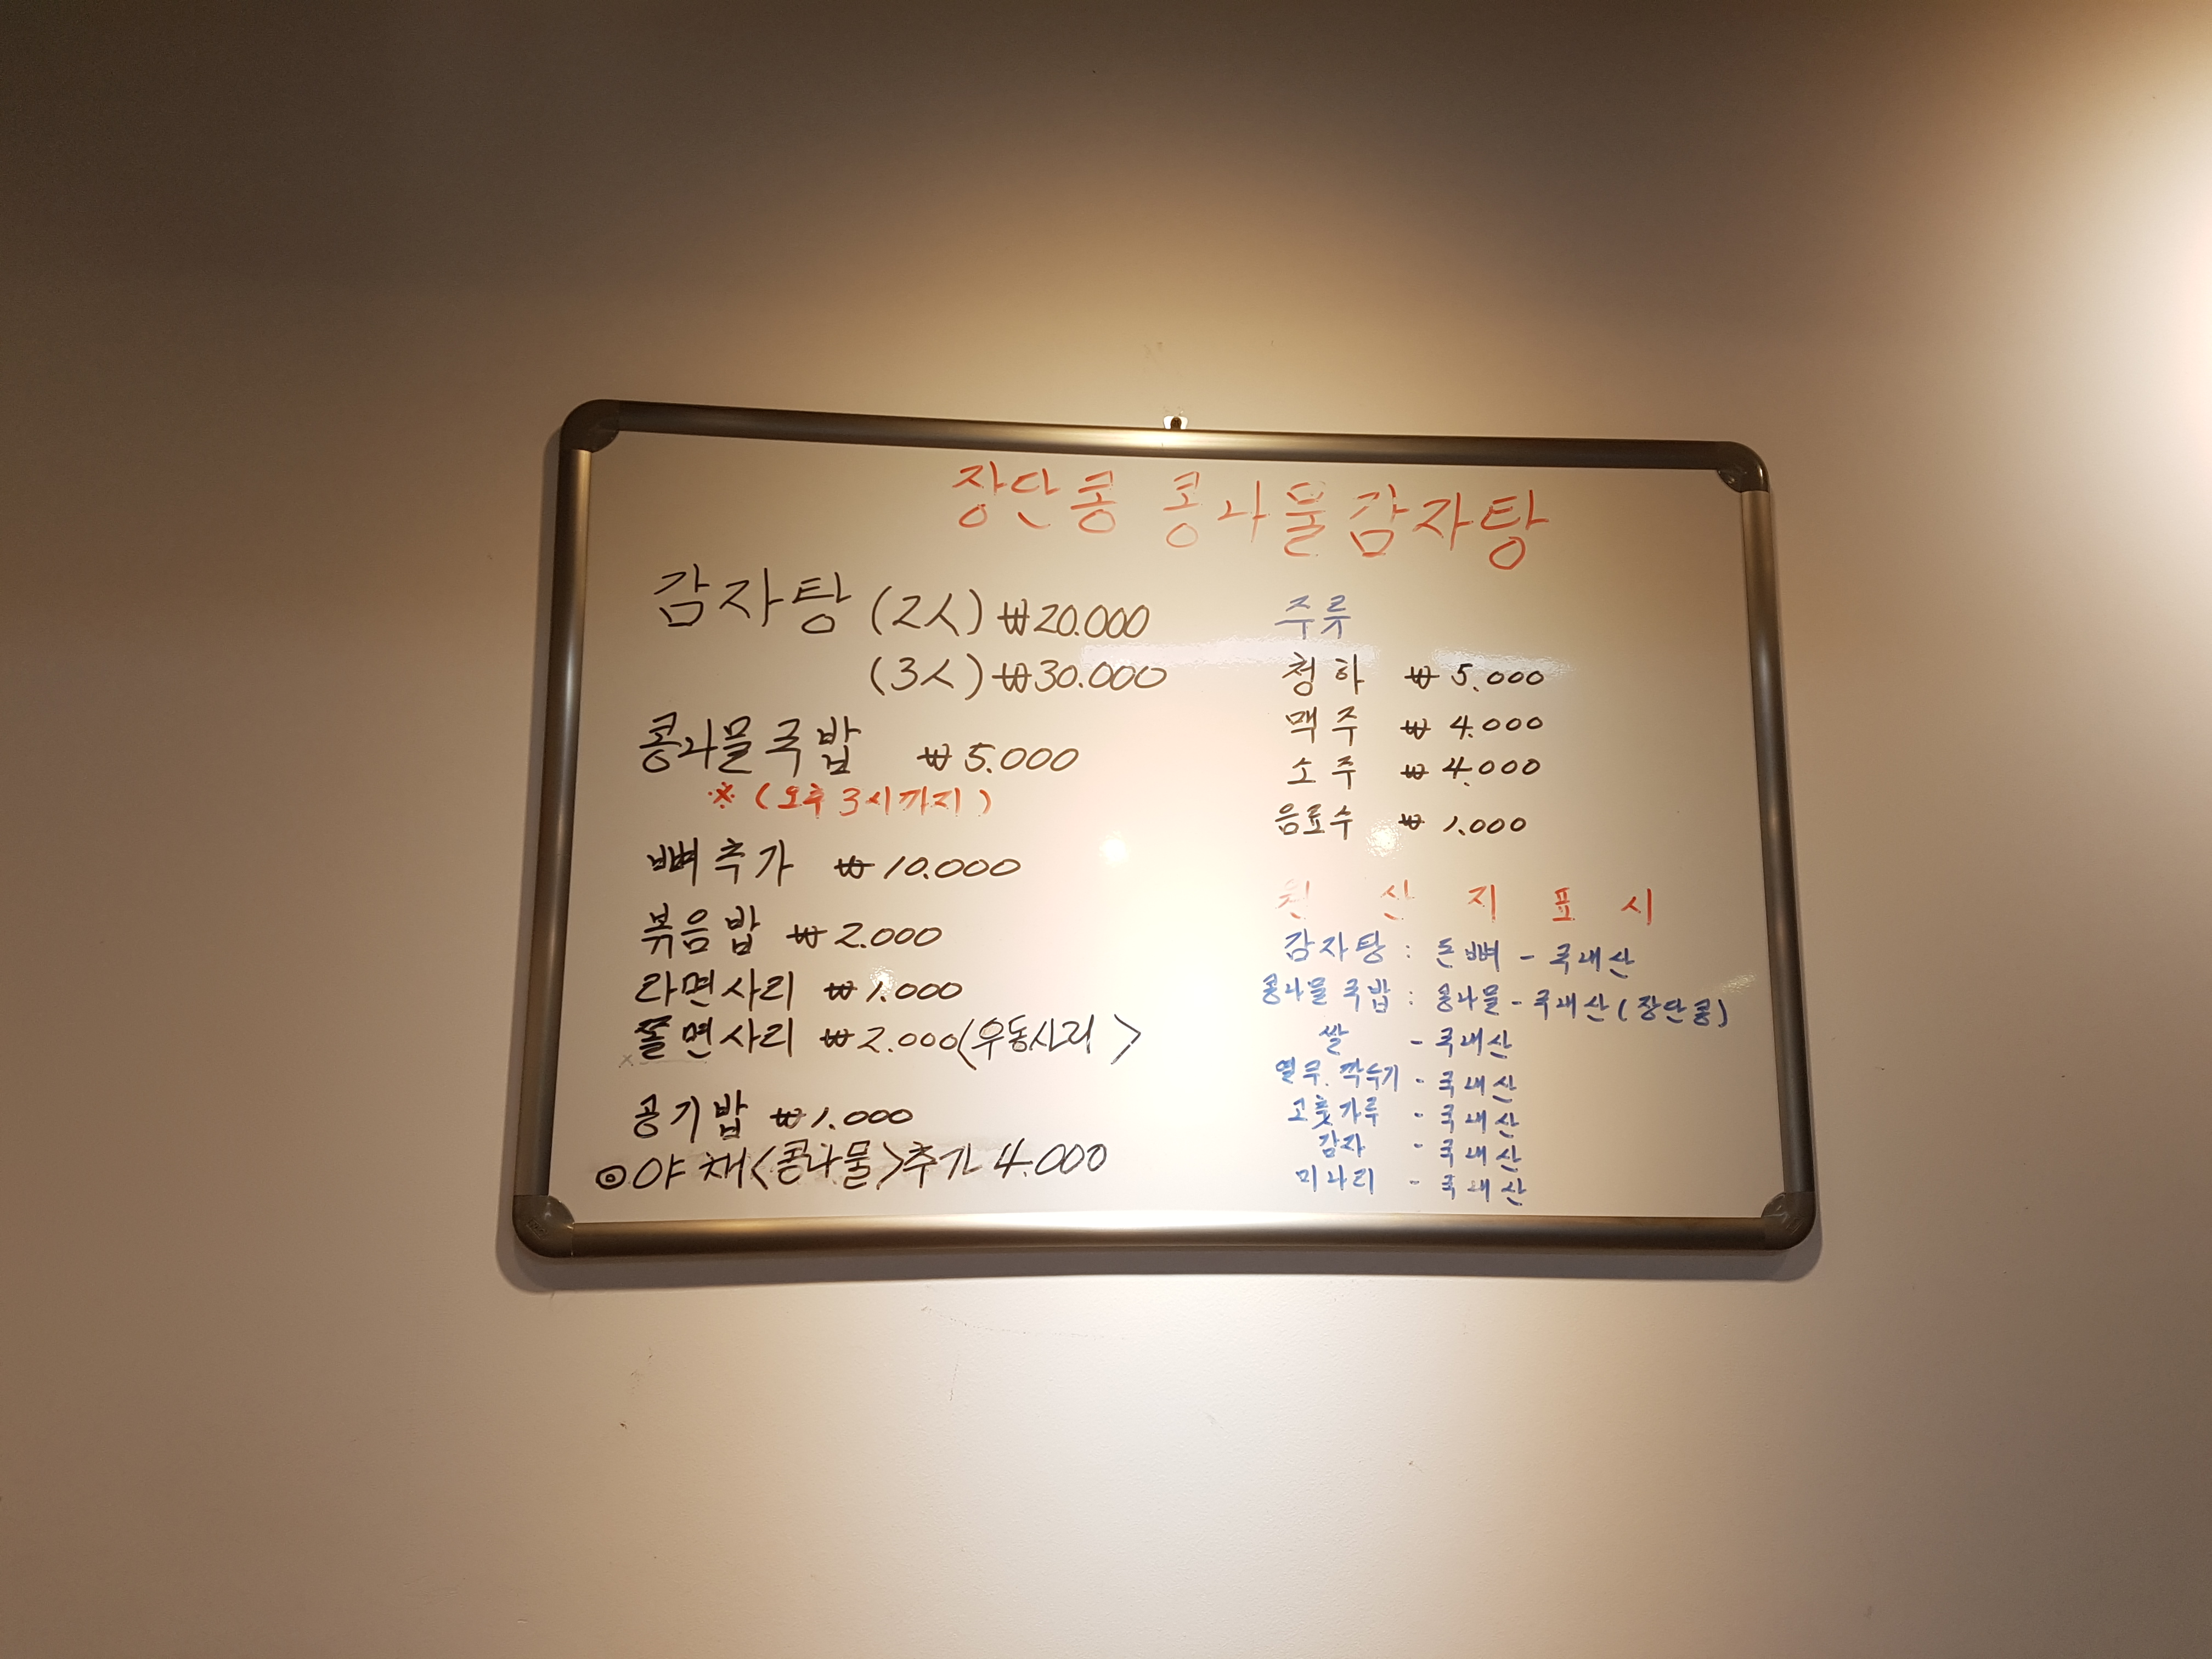 장단콩 콩나물감자탕
감자탕 (2人) ₩20.000
(3人) ₩30.000
콩나물국밥 ₩5.000
※(오후3시까지)
뼈추가 ₩10.000
볶음밥 ₩2.000
라면사리 ₩1.000
쫄면사리 ₩2.000(우동사리 >
공기밥 ₩1.000
◎야채<콩나물>추가 4.000
주류
청하 ₩5.000
맥주 ₩4.000
소주 ₩4.000
음료수 ₩1.000
원 산 지 표 시
감자탕 : 돈뼈 - 국내산
콩나물국밥 : 콩나물 - 국내산(장단콩)
쌀 - 국내산
열무.깍두기 - 국내산
고춧가루 - 국내산
감자 - 국내산
미나리 - 국내산